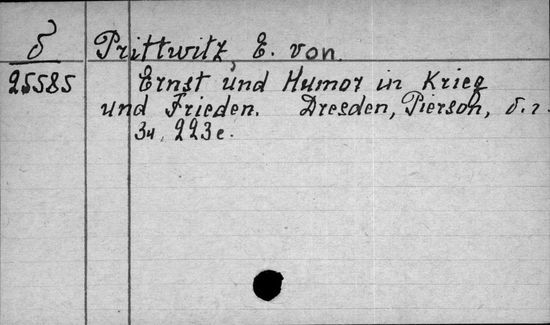 б Prittwitz, E. von.
25585 Ernst und Humor in Krieg
und Frieden. Dresden, Pierson, б.г.
3н, 223 с.